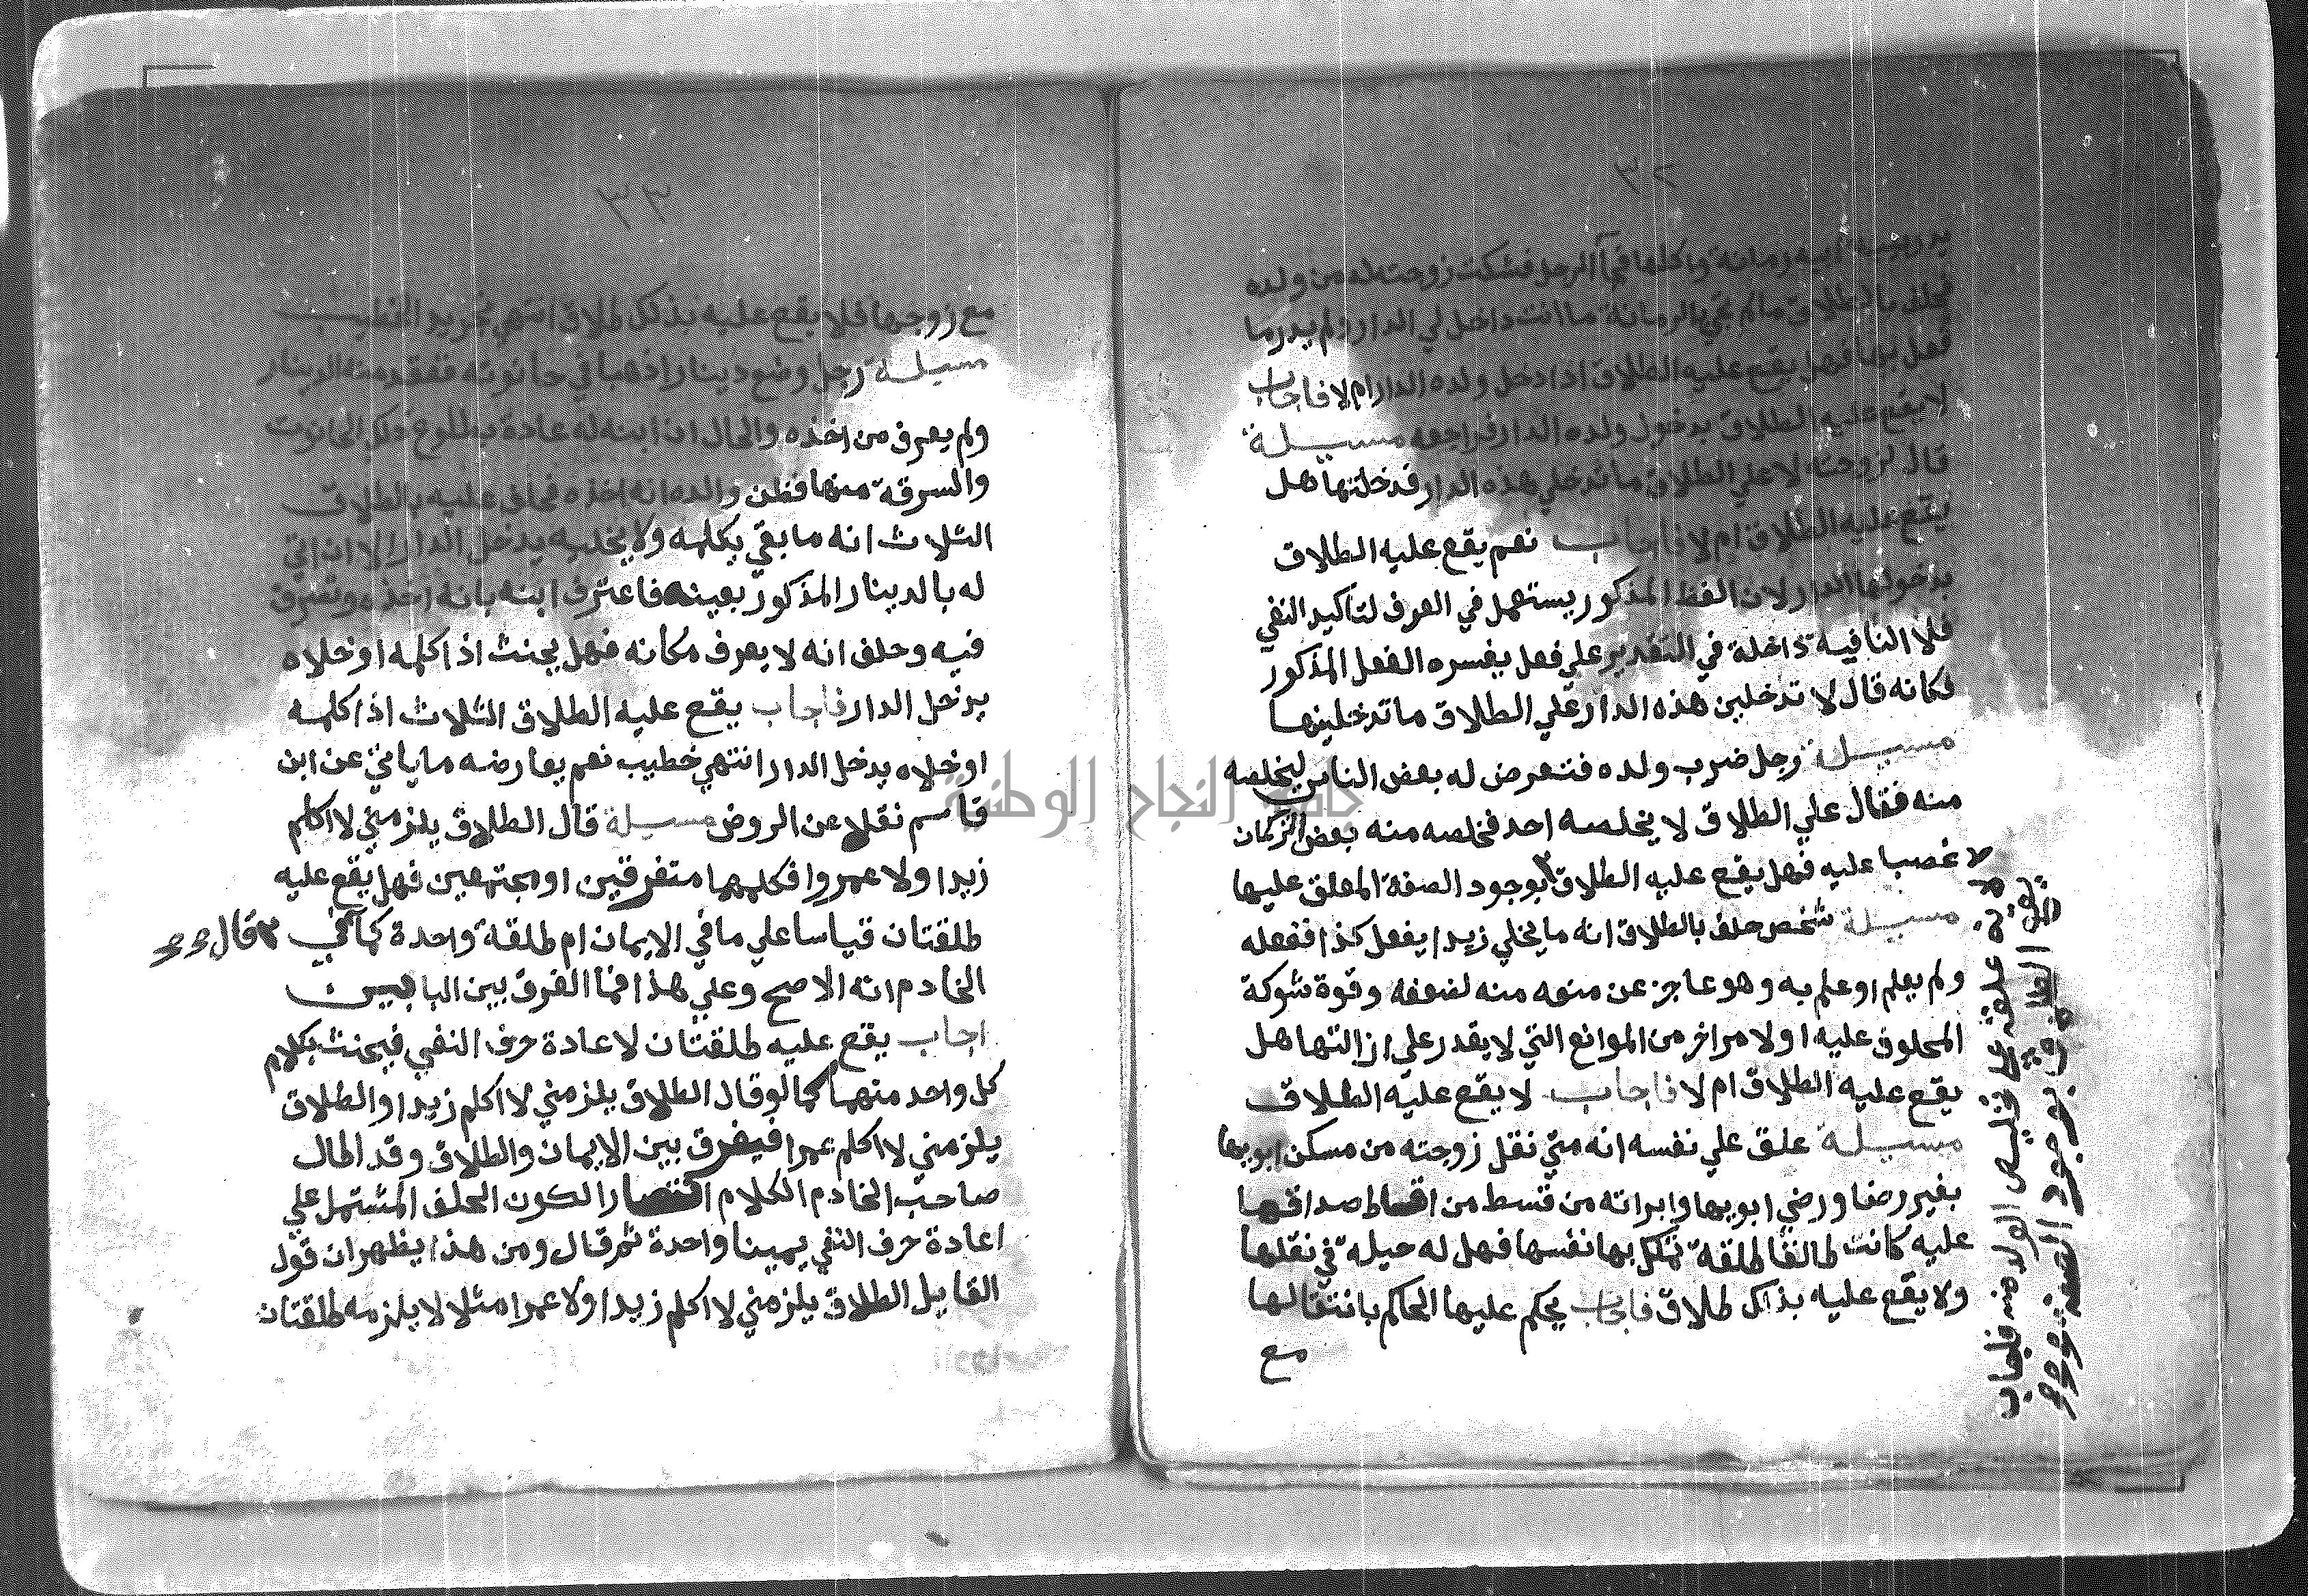 ٣٢
رمانة واكلها فجآ الرجل فشكت زوجته له من ولده
فحلف بالطلاق مالم تجي بالرمانة ما انت داخل لي الدار ولم يدر ما
فعل بها فهل يقع عليه الطلاق اذا دخل ولده الدار ام لا فاجاب
لا يقع عليه الطلاق بدخول ولده الدار فراجعه مسيلة
قال لزوجته لا علي الطلاق ما تدخلي هذه الدار فدخلتها هل
يقع عليه الطلاق ام لا فاجاب نعم يقع عليه الطلاق
بدخولها الدار لان الفظ المذكور يستعمل في العرف لتاكيد النفي
فلا النافية داخلة في التقدير علي فعل يفسره الفعل المذكور
فكانه قال لا تدخلين هذه الدار علي الطلاق ما تدخلينها
مسيلة رجل ضرب ولده فتعرض له بعض الناس ليخلصه
منه فقال علي الطلاق لا يخلصه احد فخلصه منه بعض التركمان
غصبا عليه فهل يقع عليه الطلاق بوجود الصفة المعلق عليها
مسيلة شخص حلف بالطلاق انه ما يخلي زيدا يفعل كذا ففعله
ولم يعلم او علم به وهو عاجز عن منعه منه لضعفه وقوة شوكة
المحلوف عليه او لامر اخر من الموانع التي لا يقدر علي ازالتها هل
يقع عليه الطلاق ام لا فاجاب لا يقع عليه الطلاق
مسيلة علق علي نفسه انه متي نقل زوجته من مسكن ابويها
بغير رضا ورضي ابويها وابراته من قسط من اقساط صداقها
عليه كانت طالقا طلقة تملك بها نفسها فهل له حيلة في نقلها
ولا يقع عليه بذاك طلاق فاجاب يحكم عليها الحاكم بانتقالها
مع
تخليص الولد منه فاجاب
الطلاق بوجود الصفة
٣٣
مع زوجها فلا يقع عليه بذلك طلاق انتهي تجريد الخطيب
مسيلة رجل وضع دينارا ذهبا في حانوته ففقد منه الدينار
ولم يعرف من اخذه والحال ان ابنه له عادة بطلوع ذلك الحانوت
والسرقة منها فظن والده انه اخذه فحلف عليه بالطلاق
الثلاث انه ما بقي يكلمه ولا يخليه يدخل الدار الا ان اتي
له بالدينار المذكور بعينه فاعترف ابنه بانه اخذه وتصرف
فيه وحلف انه لا يعرف مكانه فهل يحنث اذا كلمه او خلاه
يدخل الدار فاجاب يقع عليه الطلاق الثلاث اذا كلمه
او خلاه يدخل الدار انتهي خطيب نعم يعارضه ما ياتي عن ابن
قاسم نقلا عن الروض مسيلة قال الطلاق يلزمني لا اكلم
زيدا ولا عمروا فكلمهما متفرقين او مجتمعين فهل يقع عليه
طلقتان قياسا علي ما في الايمان ام طلقة واحدة كما في قال
الخادم انه الاصح وعلي هذا فما الفرق بين البابين
اجاب يقع عليه طلقتان لاعادة حرف النفي فيحنث بكلام
كل واحد منهما كما لو قال الطلاق يلزمني لا اكلم زيدا والطلاق
يلزمني لا اكلم عمرا فيفرق بين الايمان والطلاق وقد اطال
صاحب الخادم الكلام انتصارا لكون الحلف المشتمل علي
اعادة حرف النفي يمينا واحدة ثم قال ومن هذا يظهر ان قول
القايل الطلاق يلزمني لا اكلم زيدا ولا عمرا مثلا لا يلزمه طلقتان
جامعة النجاح الوطنية